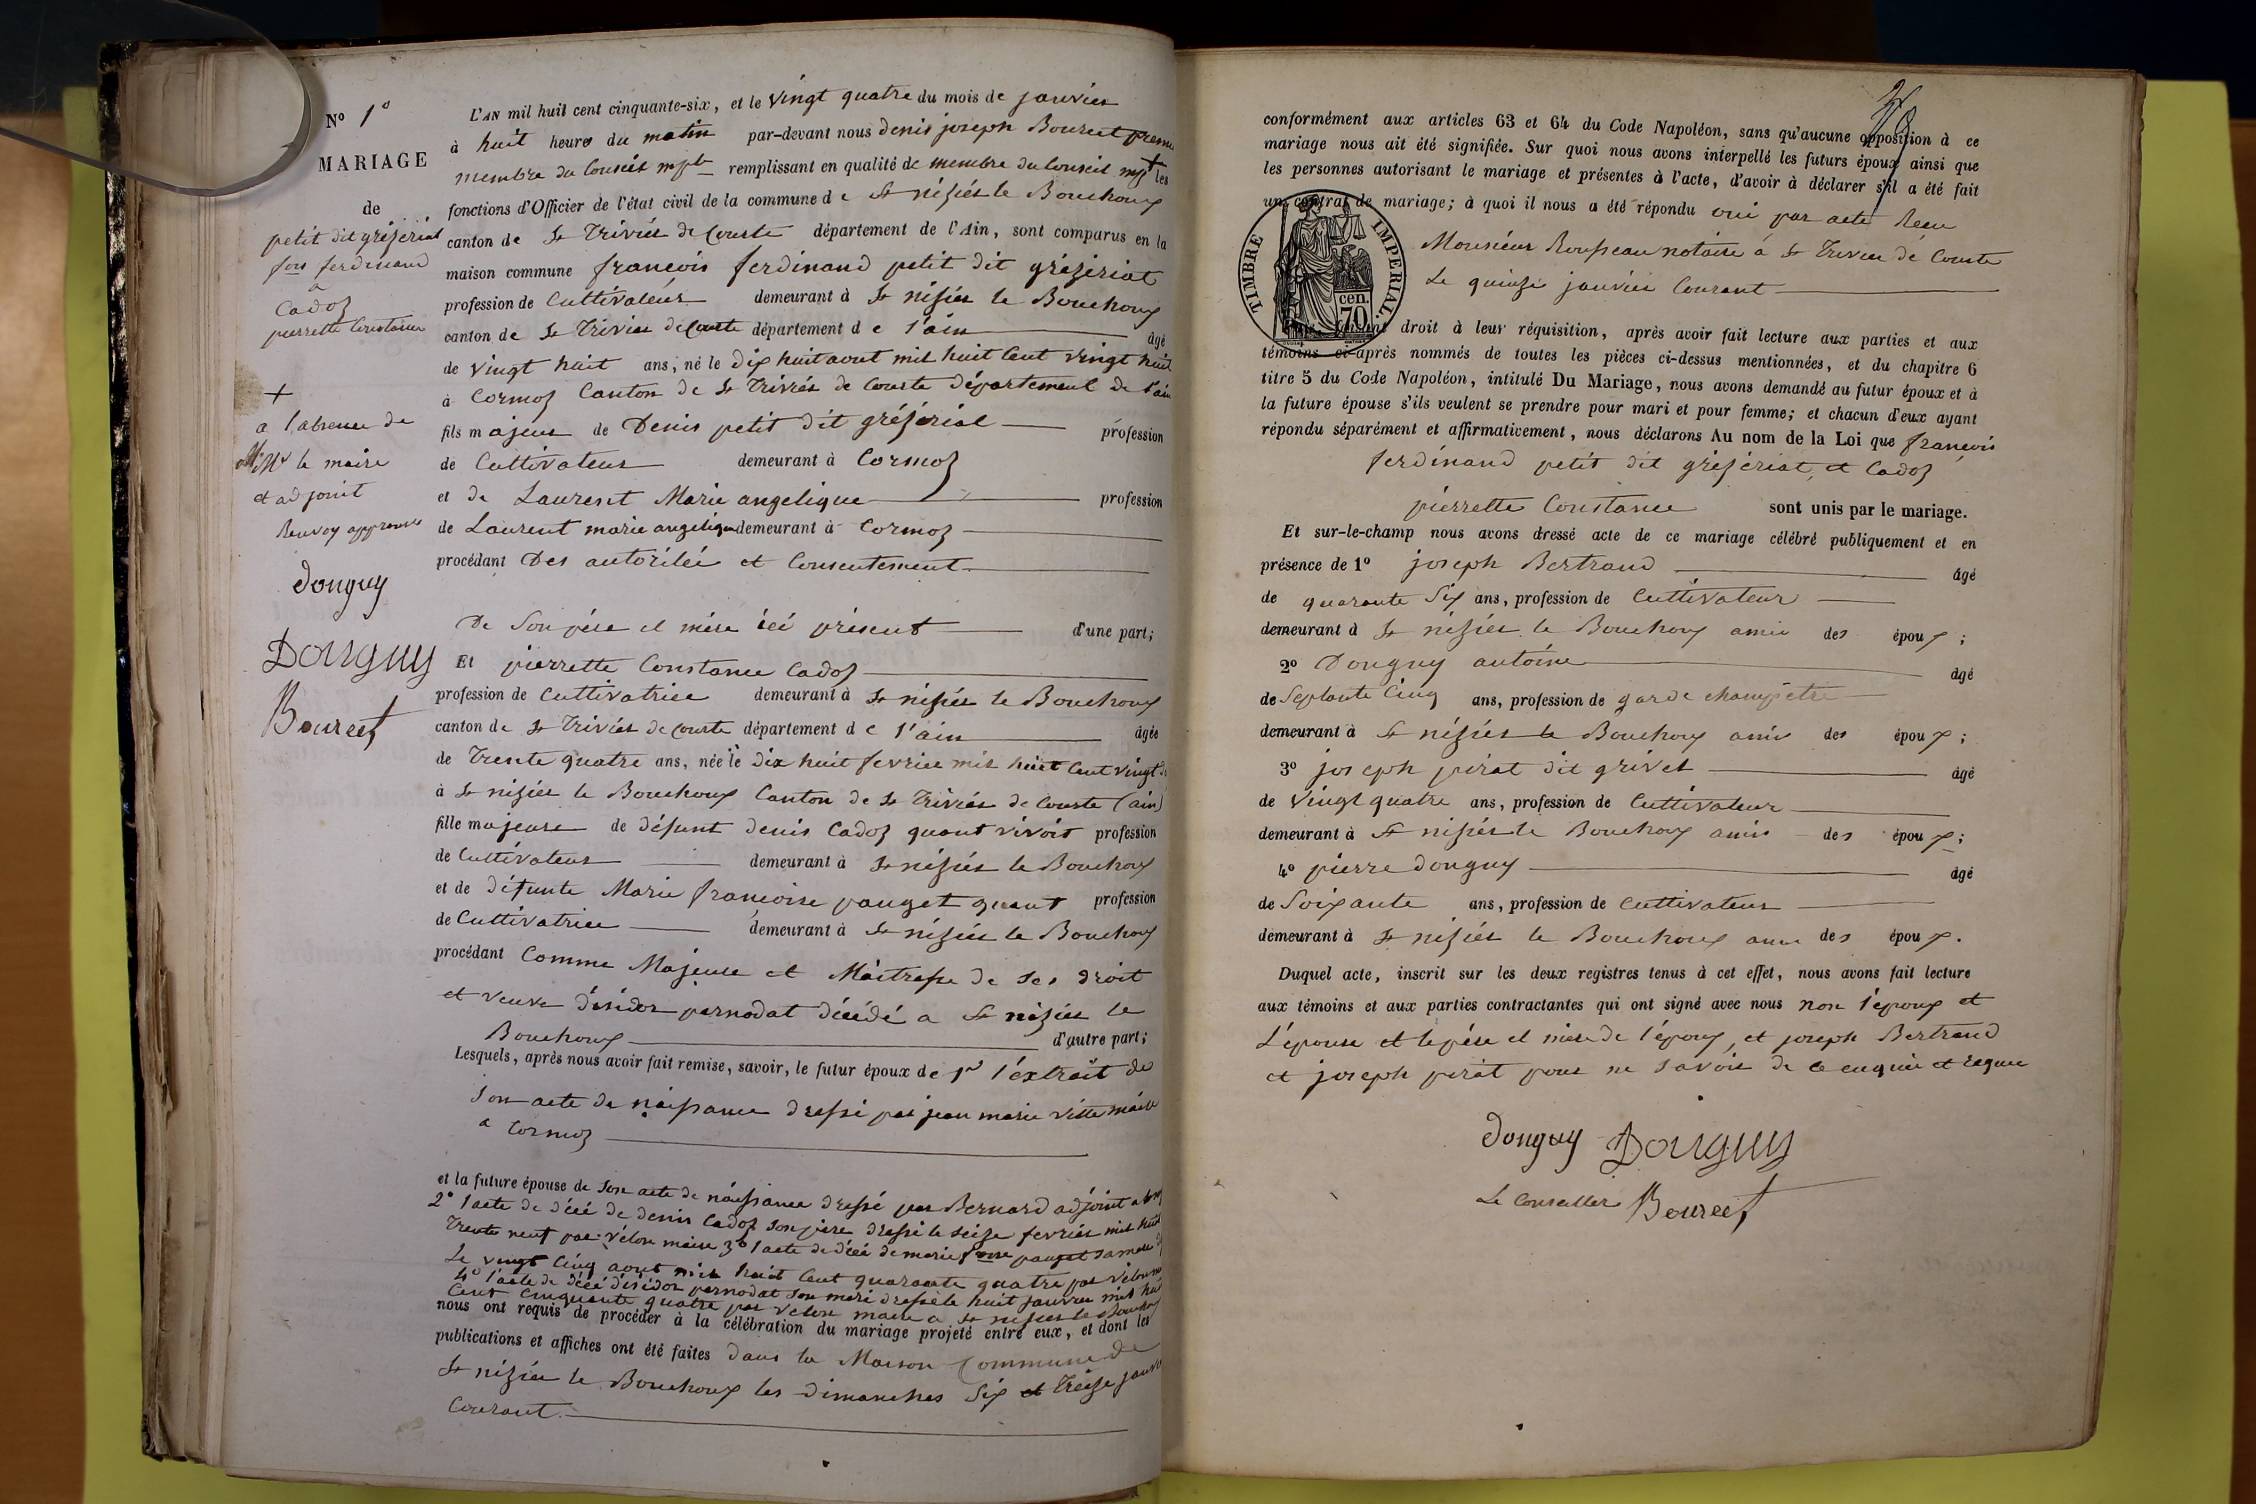 N° 1°
MARIAGE
de
petit dit grézériat
fois ferdinand
à
Cadoz
pierrette Constance
+
a l'absence de
Mr le maire
et adjoint
Renvoy approuvé
Donguy
Donguy
Bourcet
L'AN mil huit cent cinquante-six, et le vingt quatre du mois de janvier
à huit heures du matin par-devant nous denis joseph Bourcet premier
membre du Conseil mpl remplissant en qualité de membre du Conseil mpl + les
fonctions d'Officier de l'état civil de la commune de St niziés le Bouchoux
canton de St Triviés de Courte département de l'Ain, sont comparus en la
maison commune francois ferdinand petit dit grézériat
profession de Cultivateur demeurant à St niziés le Bouchoux
canton de St Triviés de Courte département de l'ain âgé
de vingt huit ans, né le dix huit aout mil huit Cent vingt huit
à Cormoz Canton de St Triviés de Courte département de l'ain
fils majeur de Denis petit dit grézériat profession
de Cultivateur demeurant à Cormoz
et de Laurent Marie angelique profession
de Laurent marie angelique demeurant à Cormoz
procédant Des autorités et Consentement
De Son père et mère icé présent d'une part;
Et pierrette Constance Cadoz
profession de Cultivatrice demeurant à St niziés le Bouchoux
canton de St Triviés de Courte département de l'ain âgée
de Trente quatre ans, née le dix huit fevrier mil huit Cent vingt
à St niziés le Bouchoux Canton de St Triviés de Courte (ain)
fille majeure de défunt denis Cadoz quant vivoit profession
de Cultivateur demeurant à St niziés le Bouchoux
et de défunte Marie francoise pauget quant profession
de Cultivatrice demeurant à St niziés le Bouchoux
procédant Comme Majeure et Maitresse de Ses droit
et veuve d'isidor pernodat décédé a St niziés le
Bouchoux d'autre part;
Lesquels, après nous avoir fait remise, savoir, le futur époux de 1° l'extrait de
Son acte de naissance dressé par jean marie vitte maire
a Cormoz
et la future épouse de Son acte de naissance dressé par Bernard adjoint
2° l'acte de décé de denis Cadoz son père dressé le seize fevrier mil huit
trente neuf par vélon maire 3° l'acte de décé de marie fcoise pauget sa mère
Le vingt Cinq aout mil huit Cent quarante quatre par vélon
4° l'acte de décé d'isidor pernodat son mari dressé le huit janvier mil huit
Cent Cinquante quatre par vélon maire a St niziés le Bouchoux
nous ont requis de procéder à la célébration du mariage projeté entre eux, et dont les
publications et affiches ont été faites dans la Maison Commune de
St niziés le Bouchoux les dimanches Six et Treize janvier
Courant.
conformément aux articles 63 et 64 du Code Napoléon, sans qu'aucune opposition à ce
mariage nous ait été signifiée. Sur quoi nous avons interpellé les futurs époux ainsi que
les personnes autorisant le mariage et présentes à l'acte, d'avoir à déclarer s'il a été fait
un contrat de mariage; à quoi il nous a été répondu oui par acte Recu
Monsieur Rousseau notaire à St Trivier de Courte
Le quinze janvier Courant
TIMBRE IMPERIAL
cen.
70
droit à leur réquisition, après avoir fait lecture aux parties et aux
témoins ci-après nommés de toutes les pièces ci-dessus mentionnées, et du chapitre 6
titre 5 du Code Napoléon, intitulé Du Mariage, nous avons demandé au futur époux et à
la future épouse s'ils veulent se prendre pour mari et pour femme; et chacun d'eux ayant
répondu séparément et affirmativement, nous déclarons Au nom de la Loi que francois
ferdinand petit dit grézériat, et Cadoz
pierrette Constance sont unis par le mariage.
Et sur-le-champ nous avons dressé acte de ce mariage célébré publiquement et en
présence de 1° joseph Bertrand âgé
de quarante Six ans, profession de Cultivateur
demeurant à St niziés le Bouchoux amis des époux;
2° Donguy antoine âgé
de Septante Cinq ans, profession de garde champetre
demeurant à St niziés le Bouchoux amis des époux;
3° joseph pirat dit grivet âgé
de vingt quatre ans, profession de Cultivateur
demeurant à St niziés le Bouchoux amis des époux;
4° pierre Donguy âgé
de Soixante ans, profession de Cultivateur
demeurant à St niziés le Bouchoux amis des époux.
Duquel acte, inscrit sur les deux registres tenus à cet effet, nous avons fait lecture
aux témoins et aux parties contractantes qui ont signé avec nous non l'époux et
L'épouse et le père et mère de l'époux, et joseph Bertrand
et joseph pirat pour ne savoir de ce enquis et requis
Donguy Donguy
Le Conseiller Bourcet